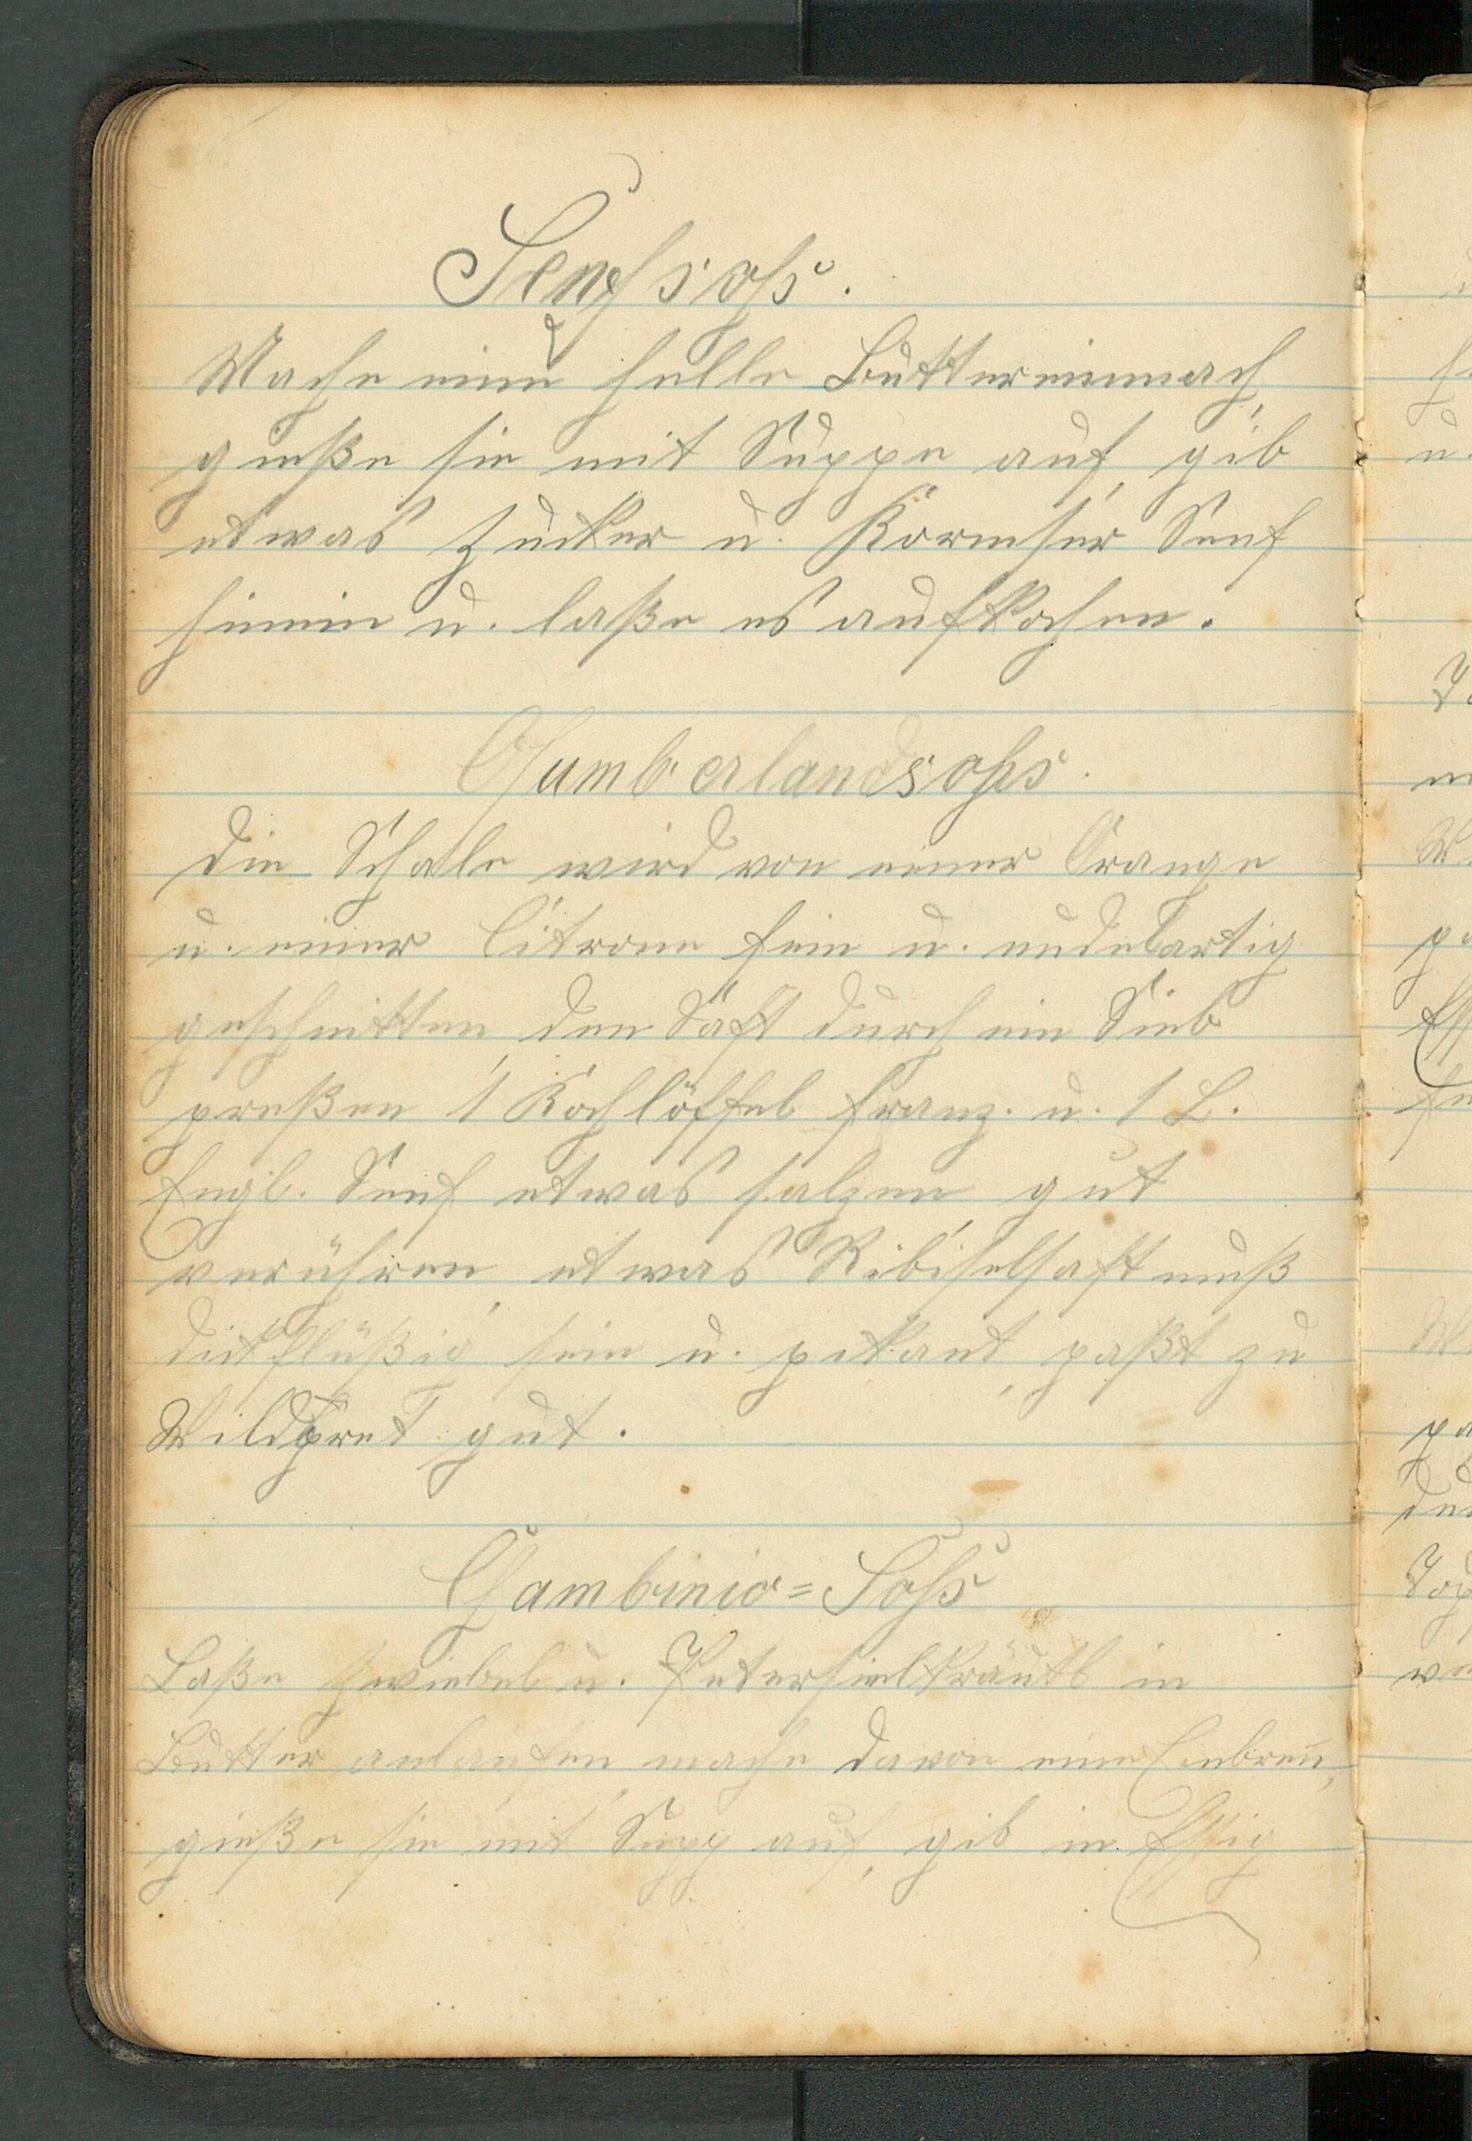 Senfsohs.
Mache eine helle Buttereinmach,
gieße sie mit Suppe auf, gib
etwas Zucker u. Kremser Senf
hinein u. laße es aufkochen.
Chumberlandsohs.
Die Schale wird von einer Orange
u. einer Citrone fein u. nudelartig
geschnitten, den Saft durch ein Sieb
preßen 1 Kochlöffel franz. u. 1 L.
Engl. Senf etwas salzen gut
verühren, etwas Ribiselsaft muß
dickflüßig sein u. pikant, paßt zu
Wildpret gut.
Chambinio=Sohs
Laße Zwiebel u. Petersielkräutl in
Butter anlaufen, mache davon eine Einbreñ,
gieße sie mit Supp auf, gib in Essig